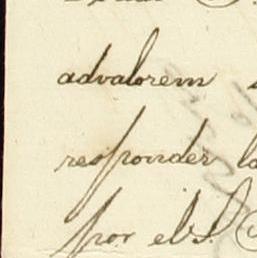 advalorem
responder
por el S.